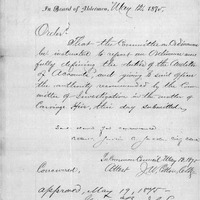 In Board of Aldermen, May 12, 1875.
Order'd
That the Committee on Ordinances
be instructed to report an Ordinance more
fully defining the duties of the Auditor
of Accounts, and giving to said officer
the authority recommended by the Com
mittee of Investigation in the matter of
Carriage Hire, this day submitted.
Sent down for concurrence
In Common Council, May 18, 1875
Concurred. Attest
Approved, May 19, 1875